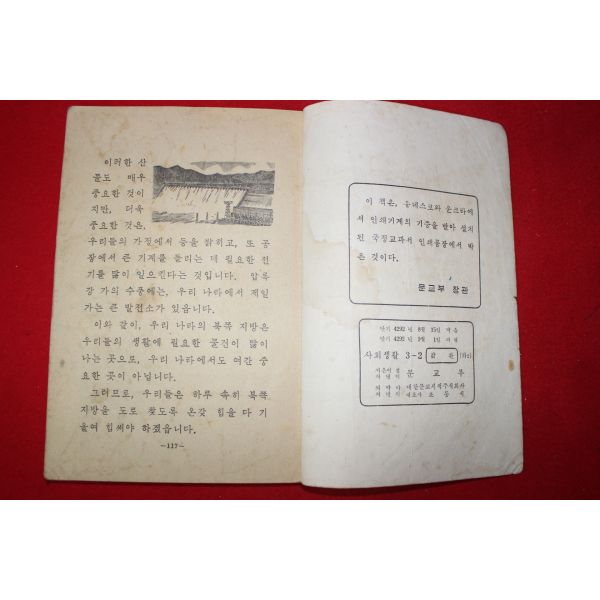 이러한 산
물도 매우
중요한 것이
지만, 더욱
중요한 것은,
우리들의 가정에서 등을 밝히고, 또 공
장에서 큰 기계를 돌리는 데 필요한 전
기를 많이 일으킨다는 것입니다. 압록
강 가의 수풍에는, 우리 나라에서 제일
가는 큰 발전소가 있읍니다.
이와 같이, 우리 나라의 북쪽 지방은
우리들의 생활에 필요한 물건이 많이
나는 곳으로, 우리 나라에서도 여간 중
요한 곳이 아닙니다.
그러므로, 우리들은 하루 속히 북쪽
지방을 도로 찾도록 온갖 힘을 다 기
울여 힘써야 하겠읍니다.
—117—
이 책은, 유네스코와 운크라에
서 인쇄기계의 기증을 받아 설치
된 국정교과서 인쇄공장에서 박
은 것이다.
문교부 장관
단기 4292년 8월 15일 박음
단기 4292년 9월 1일 펴냄
사회생활 3-2
문 교 부
대한문교서적주식회사